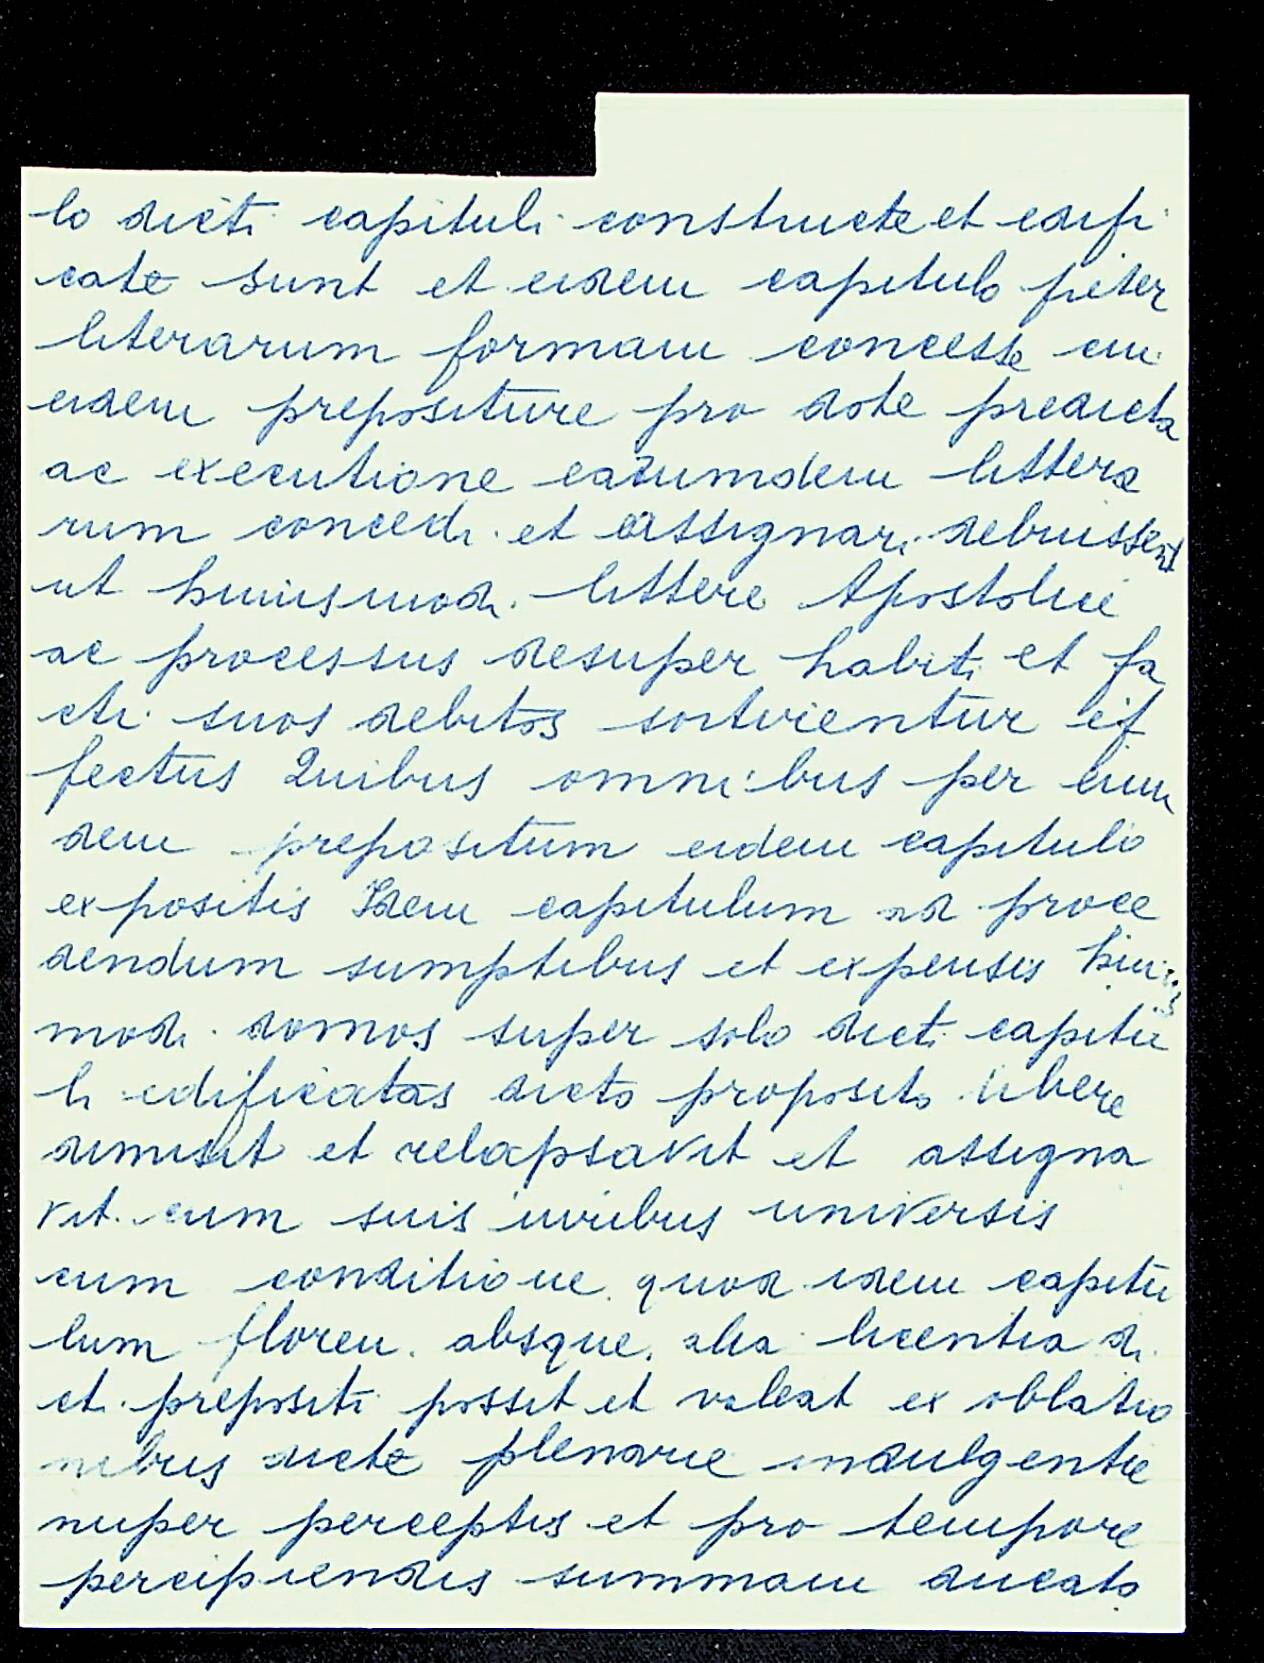 lo dicti capituli constructe et edifi
cate sunt et eidem capitulo preter
literarum formam concesse cu
eidem prepositure pro dote predicta
ac executione earumdem littera
rum concedi et assignari debuissent
ut huiusmodi littere Apostolice
ac processus desuper habiti et fa
cti suos debitos sortirentur ef
fectus Quibus omnibus per eum
dem prepositum eidem capitulo
expositis Idem capitulum ad proce
dendum sumptibus et expensis huius
modi domos super solo dicti capitu
li edificatas dicto preposito libere
dimisit et relapsavit et assigna
vit cum suis iuribus universis
cum conditione quod idem capitu
lum floren. absque alia licentia di
cti prepositi possit et valeat ex oblatio
nibus dicte plenarie indulgentie
nuper perceptis et pro tempore
percipiendis summam ducato